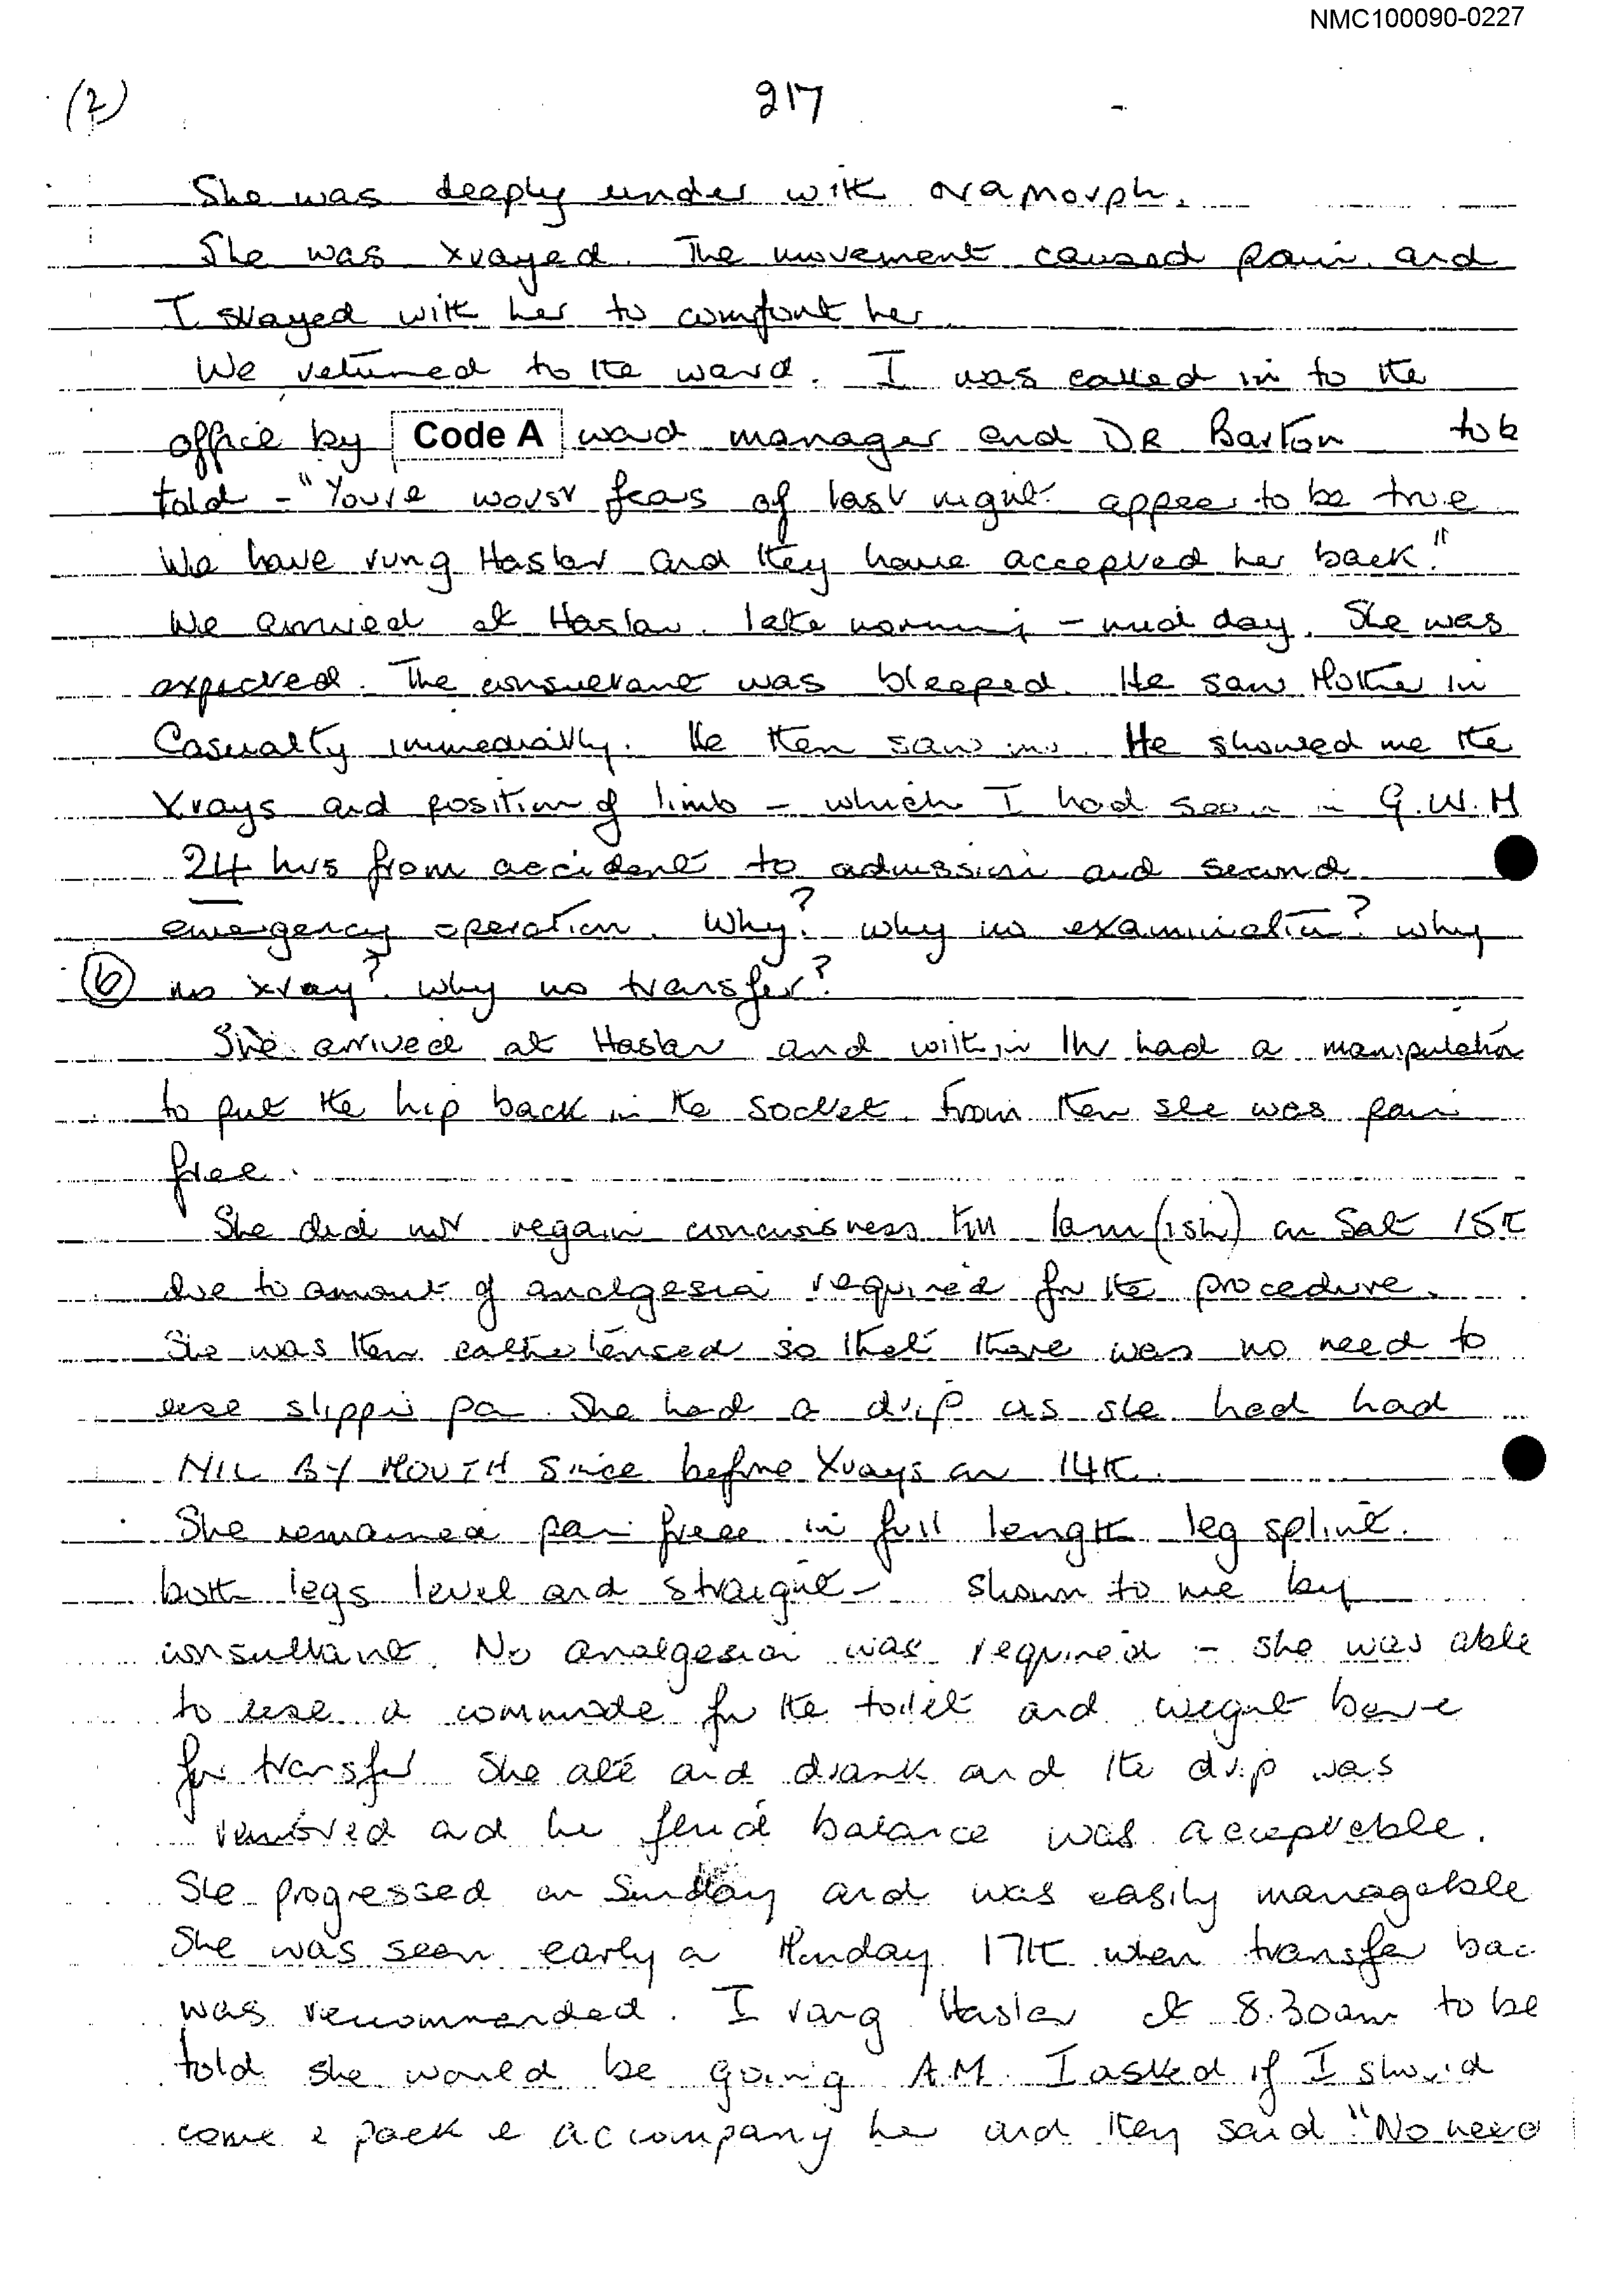 NMC100090-0227
(2)
217
She was deeply under with oramorph.
She was xrayed. The movement caused pain and
I stayed with her to comfort her
We returned to the ward. I was called in to the
office by Code A ward manager and DR Barton to b
told - "Youre worst fears of last night appear to be true
We have rung Haslar and they have accepted her back."
We arrived at Haslar late morning - mid day. She was
expected. The consultant was bleeped. He saw Mother in
Casualty immediatly. He then saw me. He showed me the
Xrays and position of limb - which I had seen in G.W.H
24 hrs from accident to admission and second
emergency operation. Why? why no examination? why
(b) no xray? why no transfer?
She arrived at Haslar and within 1hr had a manipulation
to put the hip back in the socket. From then she was pain
free.
She did not regain conciusness till 1am (ish) on Sat 15th
due to amount of analgesia required for the procedure.
She was then catheterised so that there was no need to
use slipper pan. She had a drip as she had had
NIL BY MOUTH since before Xrays on 14th.
She remained pain free in full length leg splint.
both legs level and straight - shown to me by
consultant. No analgesia was required - she was able
to use a commode for the toilet and weight bare
for transfer She ate and drank and the drip was
removed and her fluid balance was acceptable.
She progressed on Sunday and was easily managable
She was seen early on Monday 17th when transfer bac
was recommended. I rang Haslar at 8.30am to be
told she would be going A.M. I asked if I should
come & pack & accompany her and they said "No need